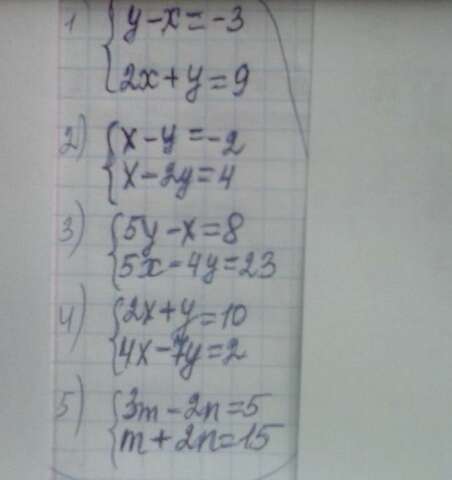 1) { y-x=-3
2x+y=9
2) { x-y=-2
x-2y=4
3) { 5y-x=8
5x-4y=23
4) { 2x+y=10
4x-7y=2
5) { 3m-2n=5
m+2n=15